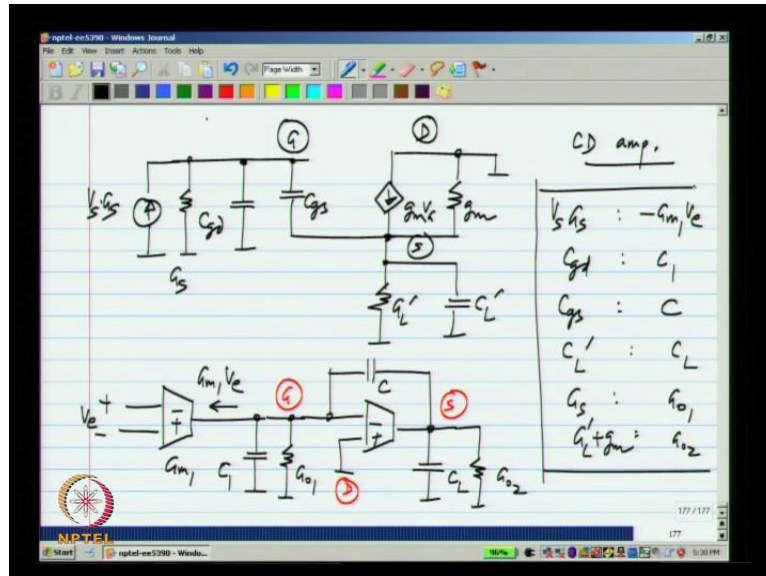 nptel-ee5390 - Windows Journal
File Edit View Insert Actions Tools Help
Page Width
B I
G D CD amp.
V_s G_s C_gd C_gs g_m V_G g_m
G_s
S
G_L' C_L'
V_s G_s : -G_m1 V_e
C_gd : C_1
C_gs : C
C_L' : C_L
G_s : G_o1
G_L'+g_m : G_o2
G_m1 V_e
V_e + - - + G_m1 C_1 G_o1 G C - + D S C_L G_o2
177 / 177
177
NPTEL
Start nptel-ee5390 - Windo... 96% 5:30 PM